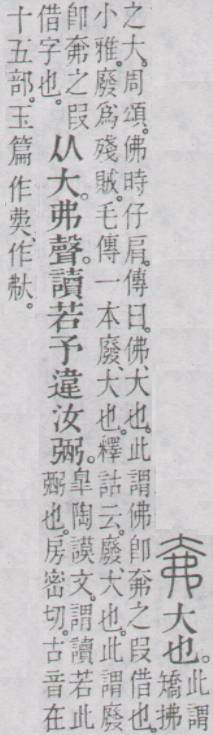 大也。此謂
矯拂
之大。周頌。佛時仔肩。傳曰。佛、大也。此謂佛卽之叚借也。
小雅。廢爲殘賊。毛傳一本廢、大也。釋詁云。廢、大也。此謂廢
卽之叚
借字也。
从大。弗聲。讀若予違汝弼。
皐陶謨文。謂讀若此
弼也。房密切。古音在
十五部。玉篇作、作。